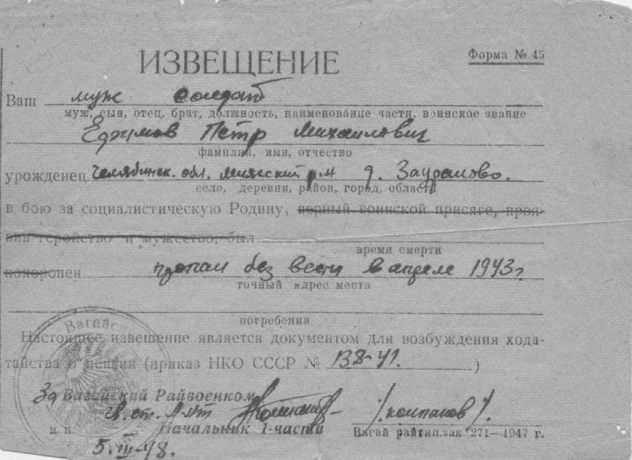 ИЗВЕЩЕНИЕ
Форма № 45
Ваш муж солдат
муж, сын, отец, брат, должность, наименование части, воинское звание
Ефимов Петр Михаилович
фамилия, имя, отчество
урожденец Челябинск. обл. Миасский р-н д. Заураново.
село, деревня, район, город, область
в бою за социалистическую Родину, верный воинской присяге, проя-
вив геройство и мужество, был
время смерти
похоронен пропал без вести в апреле 1943 г
точный адрес места
погребения
Настоящее извещение является документом для возбуждения хода-
тайства о пенсии (приказ НКО СССР № 138-41. )
Вагайс
Зa Вагайский Райвоенком
Начальник 1-части /Колпаков/
м. п.
Вагай райтип. зак. 271—1947 г.
5.III-48.